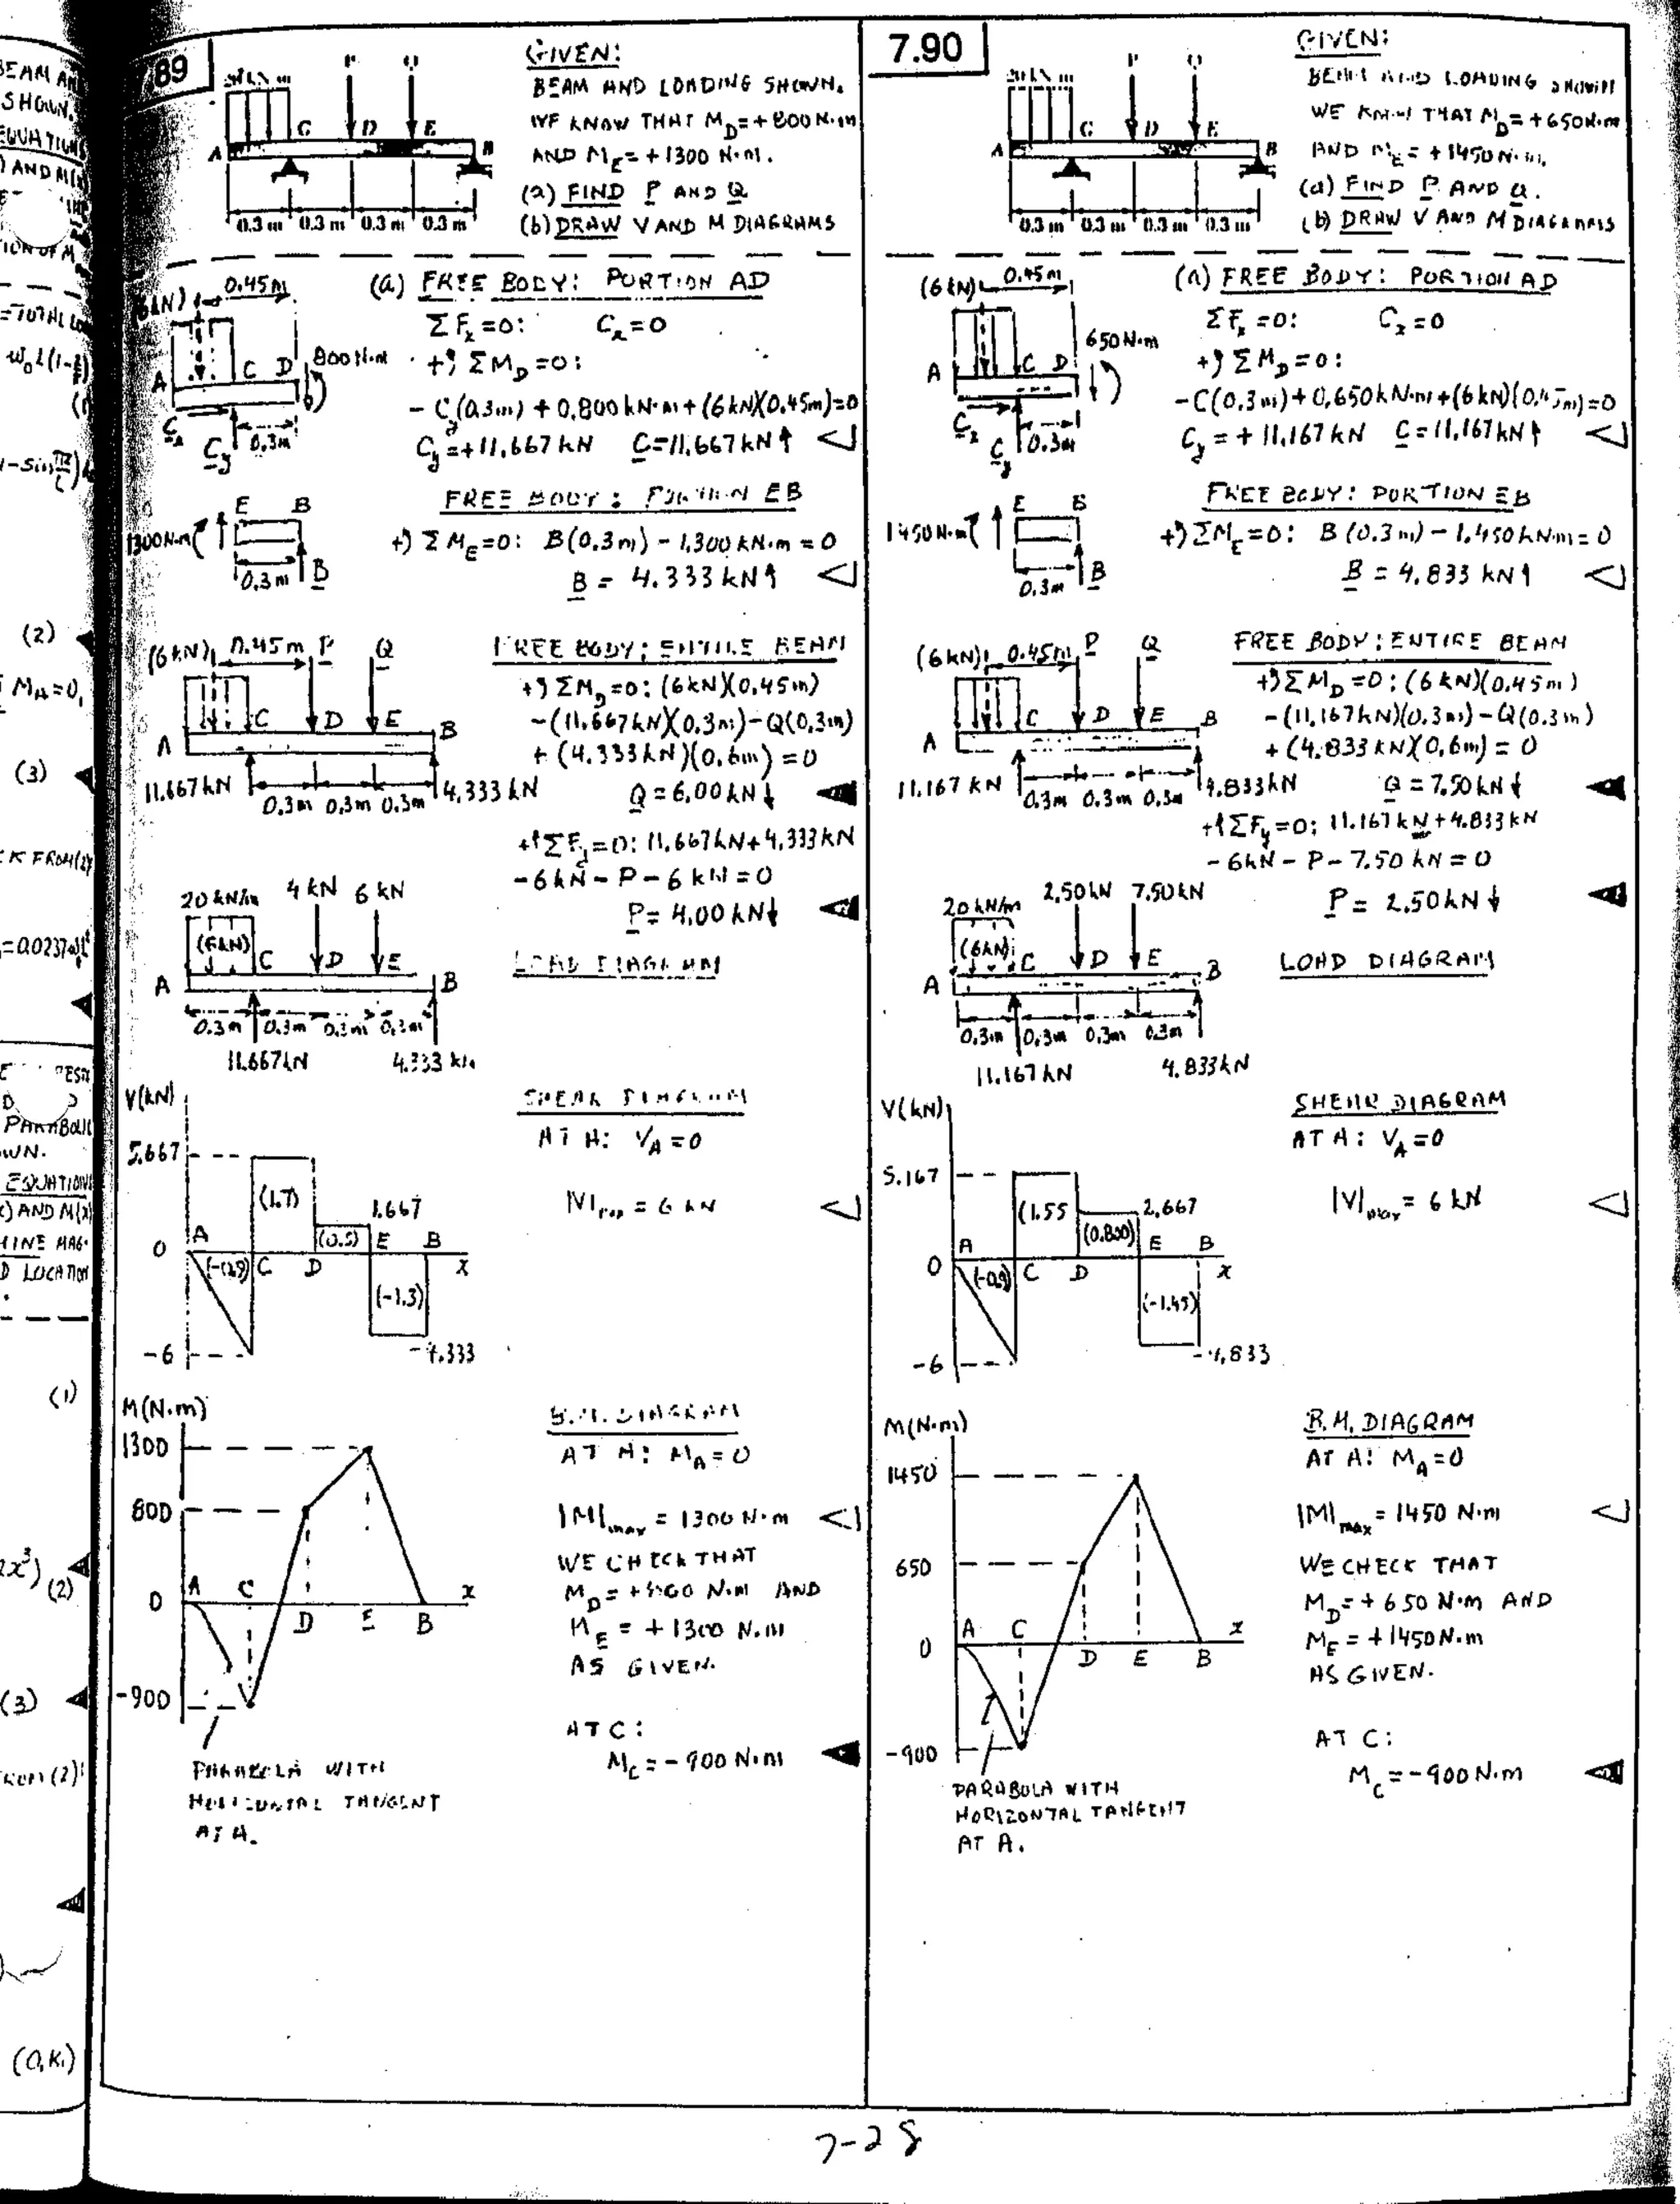 89
GIVEN:
BEAM AND LOADING SHOWN.
WE KNOW THAT M_D=+800 N·m
AND M_E=+1300 N·m.
(a) FIND P AND Q
(b) DRAW V AND M DIAGRAMS
P Q
A C D E B
0.3 m 0.3 m 0.3 m 0.3 m
(a) FREE BODY: PORTION AD
ΣF_x=0: C_x=0
+) ΣM_D=0:
-C_y(0.3m)+0.800 kN·m+(6kN)(0.45m)=0
C_y=+11.667 kN C=11.667 kN↑
(6kN) 0.45m
800 N·m
A C D
C_x C_y 0.3m
FREE BODY: PORTION EB
+) ΣM_E=0: B(0.3m)-1.300 kN·m=0
B = 4.333 kN↑
E B
1300 N·m
0.3m B
FREE BODY: ENTIRE BEAM
+) ΣM_D=0: (6kN)(0.45m)
-(11.667kN)(0.3m)-Q(0.3m)
+(4.333kN)(0.6m)=0
Q=6.00 kN↓
+↑ΣF_y=0: 11.667kN+4.333kN
-6kN-P-6kN=0
P=4.00 kN↓
(6kN) 0.45m P Q
A C D E B
11.667 kN 0.3m 0.3m 0.3m 4.333 kN
LOAD DIAGRAM
20 kN/m 4 kN 6 kN
(6kN)
A C D E B
0.3m 0.3m 0.3m 0.3m
11.667kN 4.333 kN
SHEAR DIAGRAM
AT A: V_A=0
|V|max = 6 kN
V(kN)
5.667
(1.7) 1.667
(0.5)
0 A C D E B x
(-0.9) (-1.3)
-6 -4.333
B.M. DIAGRAM
AT A: M_A=0
|M|max = 1300 N·m
WE CHECK THAT
M_D=+800 N·m AND
M_E=+1300 N·m
AS GIVEN.
AT C:
M_C=-900 N·m
M(N·m)
1300
800
0 A C D E B x
-900
PARABOLA WITH
HORIZONTAL TANGENT
AT A.
7.90
GIVEN:
BEAM AND LOADING SHOWN
WE KNOW THAT M_D=+650N·m
AND M_E=+1450N·m.
(a) FIND P AND Q.
(b) DRAW V AND M DIAGRAMS
P Q
A C D E B
0.3 m 0.3 m 0.3 m 0.3 m
(a) FREE BODY: PORTION AD
ΣF_x=0: C_x=0
+) ΣM_D=0:
-C(0.3m)+0.650kN·m+(6kN)(0.45m)=0
C_y=+11.167 kN C=11.167 kN↑
(6kN) 0.45m
650 N·m
A C D
C_x C_y 0.3m
FREE BODY: PORTION EB
+) ΣM_E=0: B(0.3m)-1.450kN·m=0
B = 4.833 kN↑
E B
1450 N·m
0.3m B
FREE BODY: ENTIRE BEAM
+) ΣM_D=0: (6kN)(0.45m)
-(11.167kN)(0.3m)-Q(0.3m)
+(4.833kN)(0.6m)=0
Q=7.50kN↓
+↑ΣF_y=0: 11.167kN+4.833kN
-6kN-P-7.50 kN=0
P = 2.50kN↓
(6kN) 0.45m P Q
A C D E B
11.167 kN 0.3m 0.3m 0.3m 4.833kN
LOAD DIAGRAM
20kN/m 2.50kN 7.50kN
(6kN)
A C D E B
0.3m 0.3m 0.3m 0.3m
11.167 kN 4.833kN
SHEAR DIAGRAM
AT A: V_A=0
|V|max = 6 kN
V(kN)
5.167
(1.55 2.667
(0.800)
0 A C D E B x
(-0.9) (-1.45)
-6 -4.833
B.M. DIAGRAM
AT A: M_A=0
|M|max = 1450 N·m
WE CHECK THAT
M_D=+650 N·m AND
M_E=+1450N·m
AS GIVEN.
AT C:
M_C=-900N·m
M(N·m)
1450
650
0 A C D E B x
-900
PARABOLA WITH
HORIZONTAL TANGENT
AT A.
7-28
(2)
(3)
(1)
(2)
(3)